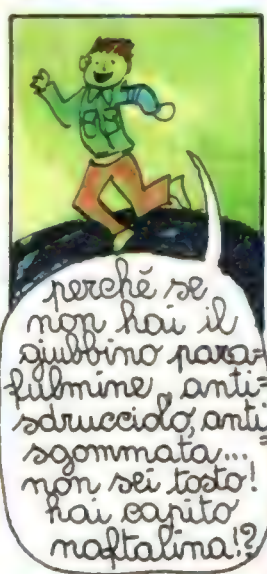 perché se
non hai il
giubbino para=
fulmine, anti=
sdrucciolo, anti
sgommata...
non sei tosto!
hai capito
naftalina!?